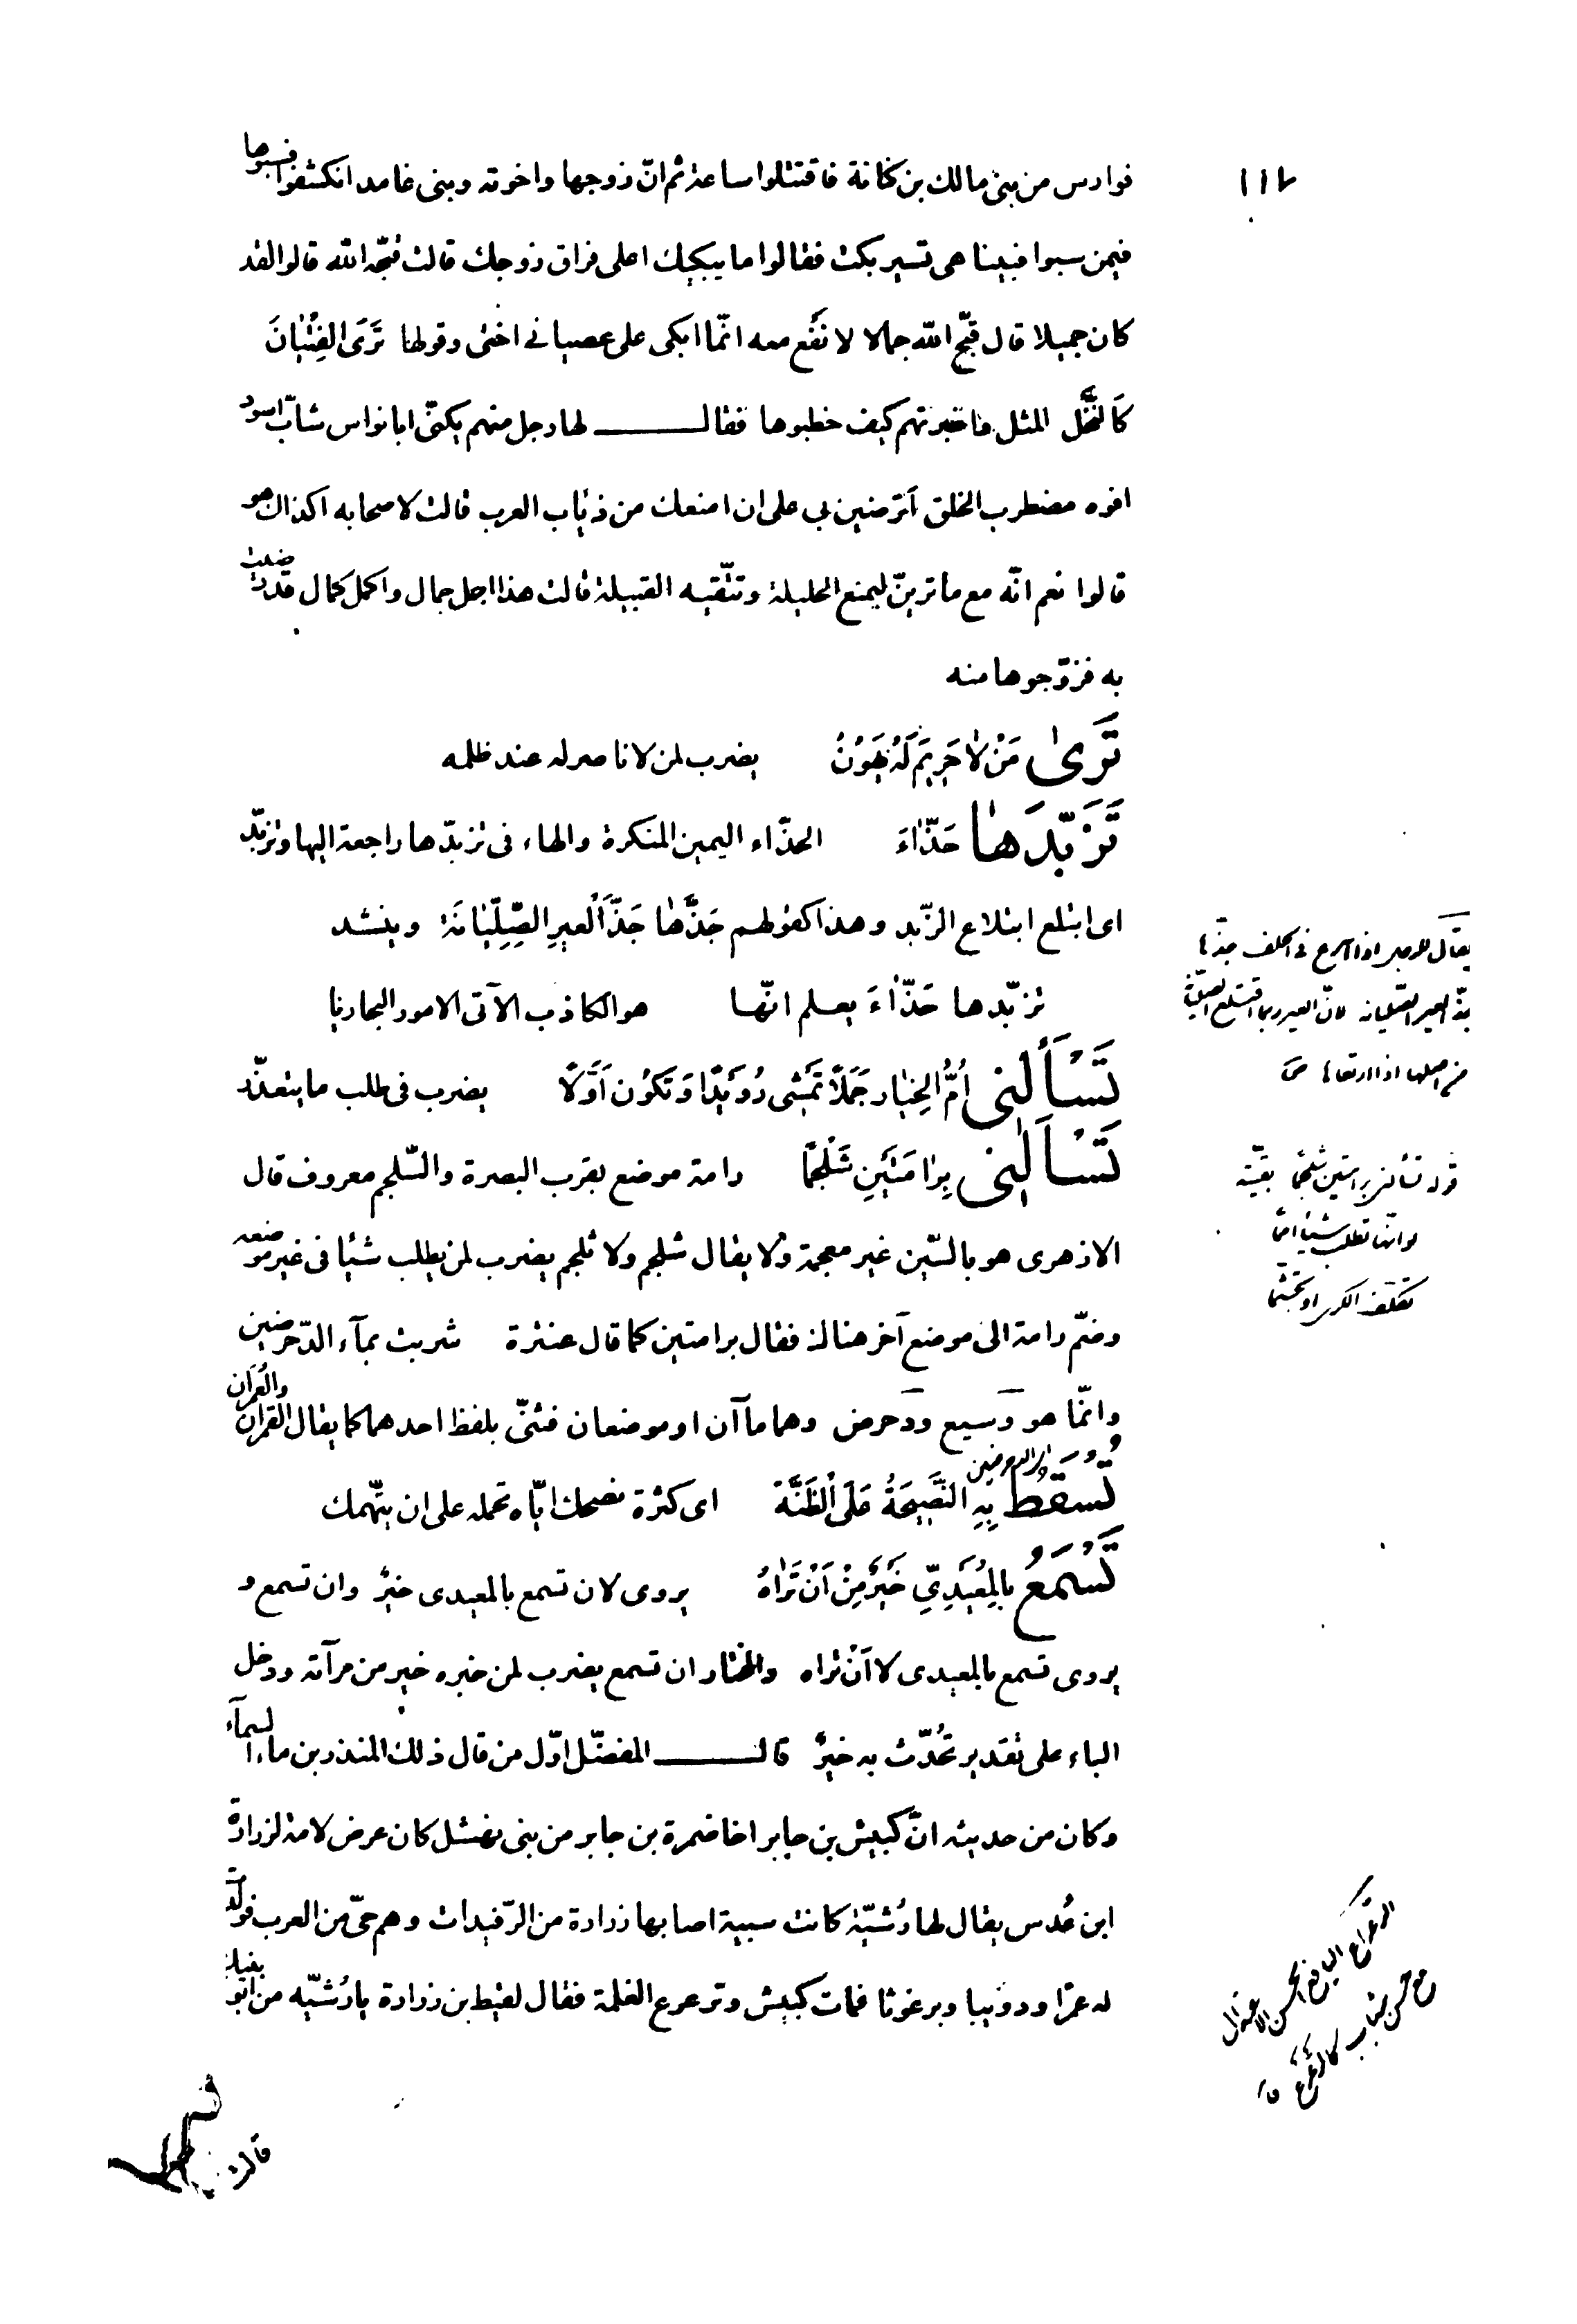 ١١٢
فوارس من بنى مالك بن كنانة فاقتتلوا ساعة ثم انّ زوجها واخوته وبنى غامد انكشفوا فسبوها
فيمن سبوا فبينا هى تسير بكت فقالوا ما يبكيك اعلى فراق زوجك قالت قبّحه الله قالوا لقد
كان جميلا قال قبّح الله جمالا لا نَفْع معه انّما ابكى على عصيانى اختى وقولها تَرَى الفِتْيٰانَ
كَالنَّخْل المثل فاخبرتهم كيف خطبوها فقال لها رجل منهم يكنّى ابا نواس شابّ اسود
افوه مضطرب الخلق أترضين بى على ان امنعك من ذئاب العرب قالت لاصحابه اكذلك هو
قالوا نعم انّه مع ما ترينّ ليمنع الحليلة وتتّقيه القبيلة قالت هذا اجمل جمال واكمل كمال قد رضيت
به فزوّجوها منه
تَرىٰ مَنْ لاٰ حَرِيمَ لَهُ يَهُونُ يضرب لمن لا ناصر له عند ظلمه
تَزَبَّدَهاٰ حَذّٰاءَ الحذّاء اليمين المنكرة والهاء فى تزبّدها راجعة اليها وتزبّد
اى ابتلع ابتلاع الزّبد وهذا كقولهم جَذَّهٰا جَذَّ الْعَيرِ الصِّلِّيٰانَة وينشد
تزبّدها حَذّٰاءَ يعلم انّها هو الكاذب الآتى الامور البجاريا
تَسْأَلُنى اُمُّ الْخِيٰار جَمَلًا يَمْشى رُوَيْدًا وَيَكُون اَوَّلًا يضرب فى طلب ما يتعذّر
تَسْأَلُنى بِرٰامَتَيْنِ سَلْجَمًا رامة موضع بقرب البصرة والسّلجم معروف قال
الازهرى هو بالسّين غير معجمة ولا يقال شلجم ولا ثلجم يضرب لمن يطلب شيئا فى غير موضعه
وضمّ رامة الى موضع آخر هناك فقال برامتين كما قال عنترة شربت بمآء الدّحرضين
وانّما هو وسيع ودحرض وهما مآآن او موضعان فثنّى بلفظ احدهما كما يقال القمران والعمران
تُسْقِطُ بِهِ النَّصِيحَةُ عَلَى الظِّنَّة اى كثرة نصحك ايّاه تحمله على ان يتّهمك
تَسْمَعُ بِالمُعَيْدِىِّ خَيْرٌ مِنْ اَنْ تَرٰاهُ يروى لان تسمع بالمعيدى خيرٌ وان تسمع و
يروى تسمع بالمعيدى لا اَنْ تراه والمختار ان تسمع يضرب لمن خبره خير من مرآته ودخل
الباء على تقدير تُحَدّث به خيرٌ قال المفضّل اوّل من قال ذلك المنذر بن ماء السمآء
وكان من حديثه انّ كبيش بن جابر اخا ضمرة بن جابر من بنى نهشل كان عرض لامة لزرارة
ابن عُدس يقال لها رُشَيّة كانت سبيّة اصابها زرارة من الرّفيدات وهم حىّ من العرب فولدت
له عمرًا وذؤيبا وبرغوثا فمات كبيش وترعرع الغلمة فقال لقيط بن زرارة يا رُشَيّه من ابو بنيك
قالت
يقال للرجل اذا اسرع فى الحلف جذّها
جذّ العير الصّليانة لانّ العير ربما اقتلع الصّليانة
من اصلها اذا ارتعاها ص
قوله تسألنى برامتين سلجما بقيّته
لو انّها تطلب شيئا امما